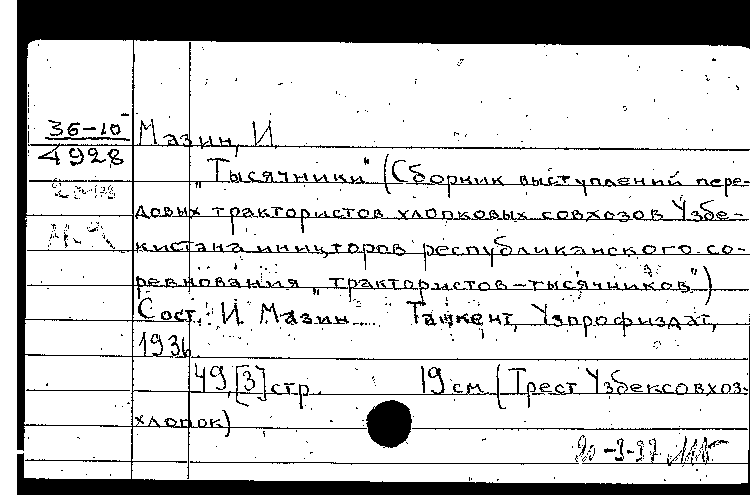 36-10 Мазин, И
4928
„Тысячники" (Сборник выступлений пере-
довых трактористов хлопковых совхозов Узбе-
кистана инициторов республиканского со-
ревнования „трактористов-тысячников")
Сост. И Мазин Ташкент, Узпрофиздат,
1936
49,[3] стр. 19 см (Трест Узбексовхоз-
хлопок)